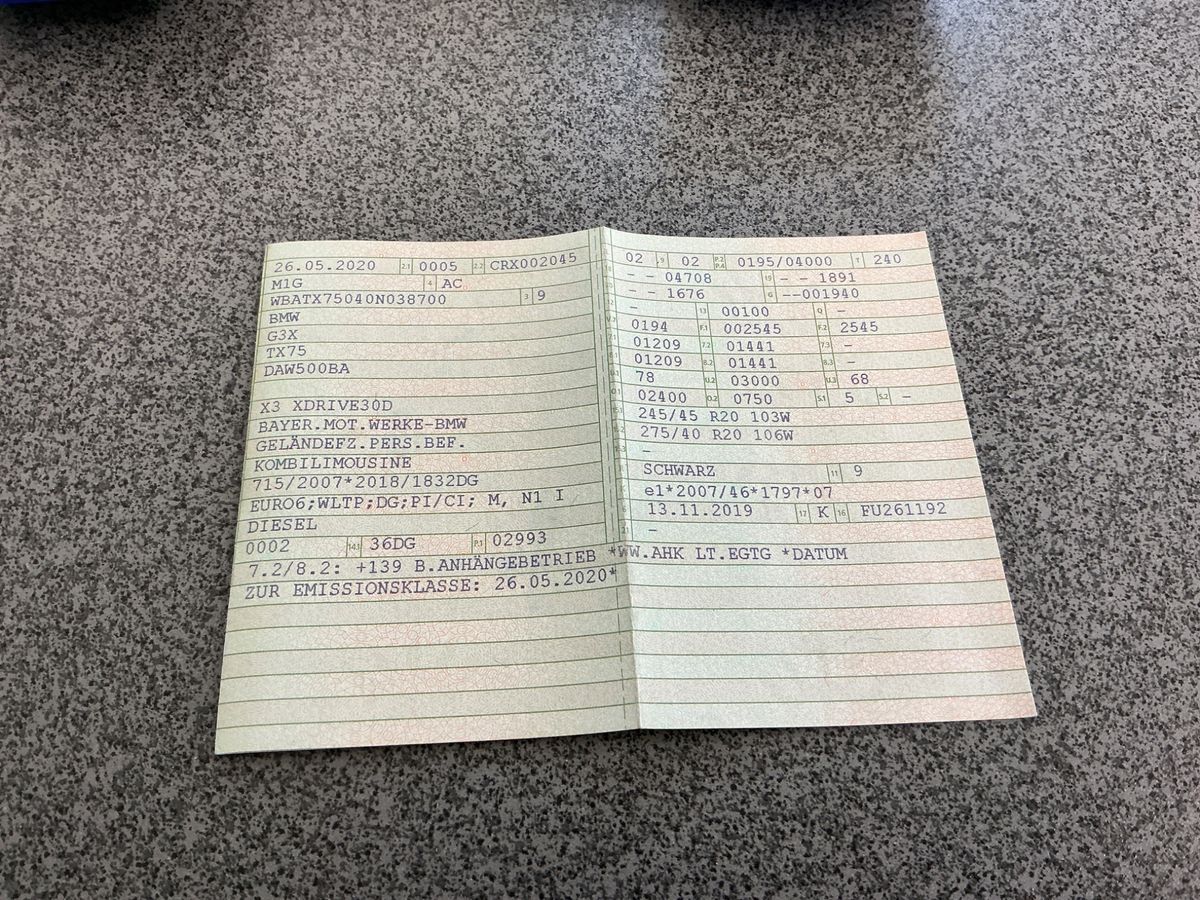 26.05.2020 2.1 0005 2.2 CRX002045
M1G 4 AC
WBATX75040N038700 3 9
BMW
G3X
TX75
DAW500BA
X3 XDRIVE30D
BAYER.MOT.WERKE-BMW
GELÄNDEFZ.PERS.BEF.
KOMBILIMOUSINE
715/2007*2018/1832DG
EURO6;WLTP;DG;PI/CI; M, N1 I
DIESEL
0002 14.1 36DG P.1 02993
7.2/8.2: +139 B.ANHÄNGEBETRIEB *WW.AHK LT.EGTG *DATUM
ZUR EMISSIONSKLASSE: 26.05.2020*
02 9 02 P.2 P.4 0195/04000 T 240
- - 04708 19 - - 1891
- - 1676 G --001940
- 13 00100 Q -
0194 F.1 002545 F.2 2545
01209 7.2 01441 7.3 -
01209 8.2 01441 8.3 -
78 U.2 03000 U.3 68
02400 O.2 0750 S.1 5 S.2 -
245/45 R20 103W
275/40 R20 106W
-
SCHWARZ 11 9
e1*2007/46*1797*07
13.11.2019 17 K 16 FU261192
-